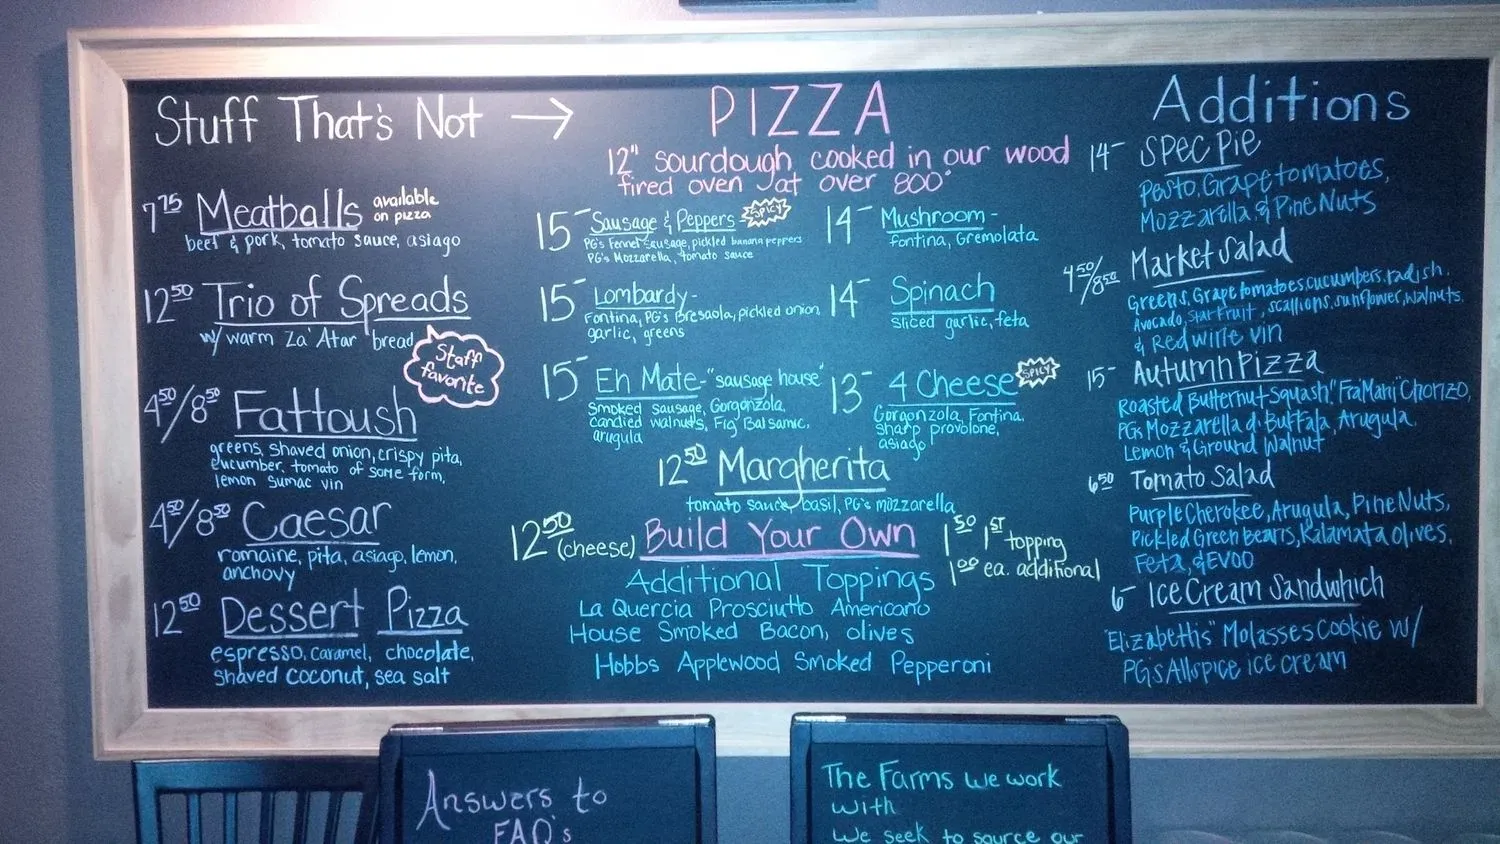 Stuff That's Not →
7 75 Meatballs available
on pizza
beef & pork, tomato sauce, asiago
12 50 Trio of Spreads
w/ warm Za' Atar bread
Staff
favorite
4 50/8 50 Fattoush
greens, shaved onion, crispy pita,
cucumber, tomato of some form,
lemon sumac vin
4 50/8 50 Caesar
romaine, pita, asiago, lemon,
anchovy
12 50 Dessert Pizza
espresso, caramel, chocolate,
shaved coconut, sea salt
PIZZA
12" sourdough cooked in our wood
fired oven at over 800°
15- Sausage & Peppers - SPICY
PG's Fennel Sausage, pickled banana peppers
PG's Mozzarella, tomato sauce
15- Lombardy-
Fontina, PG's Bresaola, pickled onion,
garlic, greens
15- Eh Mate-"sausage house"
Smoked sausage, Gorgonzola,
candied walnuts, Fig Balsamic,
arugula
14- Mushroom -
fontina, Gremolata
14- Spinach
sliced garlic, feta
13- 4 Cheese SPICY
Gorgonzola, Fontina,
sharp provolone,
asiago
12 50 Margherita
tomato sauce, basil, PG's mozzarella
12 50 (cheese) Build Your Own 1 50 1ST topping
1 00 ea. additional
Additional Toppings
La Quercia Prosciutto Americano
House Smoked Bacon, olives
Hobbs Applewood Smoked Pepperoni
Additions
14- Spec Pie
Pesto, Grape tomatoes,
Mozzarella & Pine Nuts
4 50/8 50 Market Salad
Greens, Grape tomatoes, cucumbers, radish,
Avocado, Starfruit, scallions, sunflower, walnuts
& Red wine vin
15- Autumn Pizza
Roasted Butternut Squash, "Fra'Mani" Chorizo,
PG's Mozzarella di Buffala, Arugula,
Lemon & Ground Walnut
6 50 Tomato Salad
Purple Cherokee, Arugula, Pine Nuts,
Pickled Green Beans, Kalamata olives,
Feta, & EVOO
6- Ice Cream Sandwhich
"Elizabeths" Molasses Cookie w/
PG's Allspice ice cream
Answers to
FAQ's
The Farms we work
with
We seek to source our